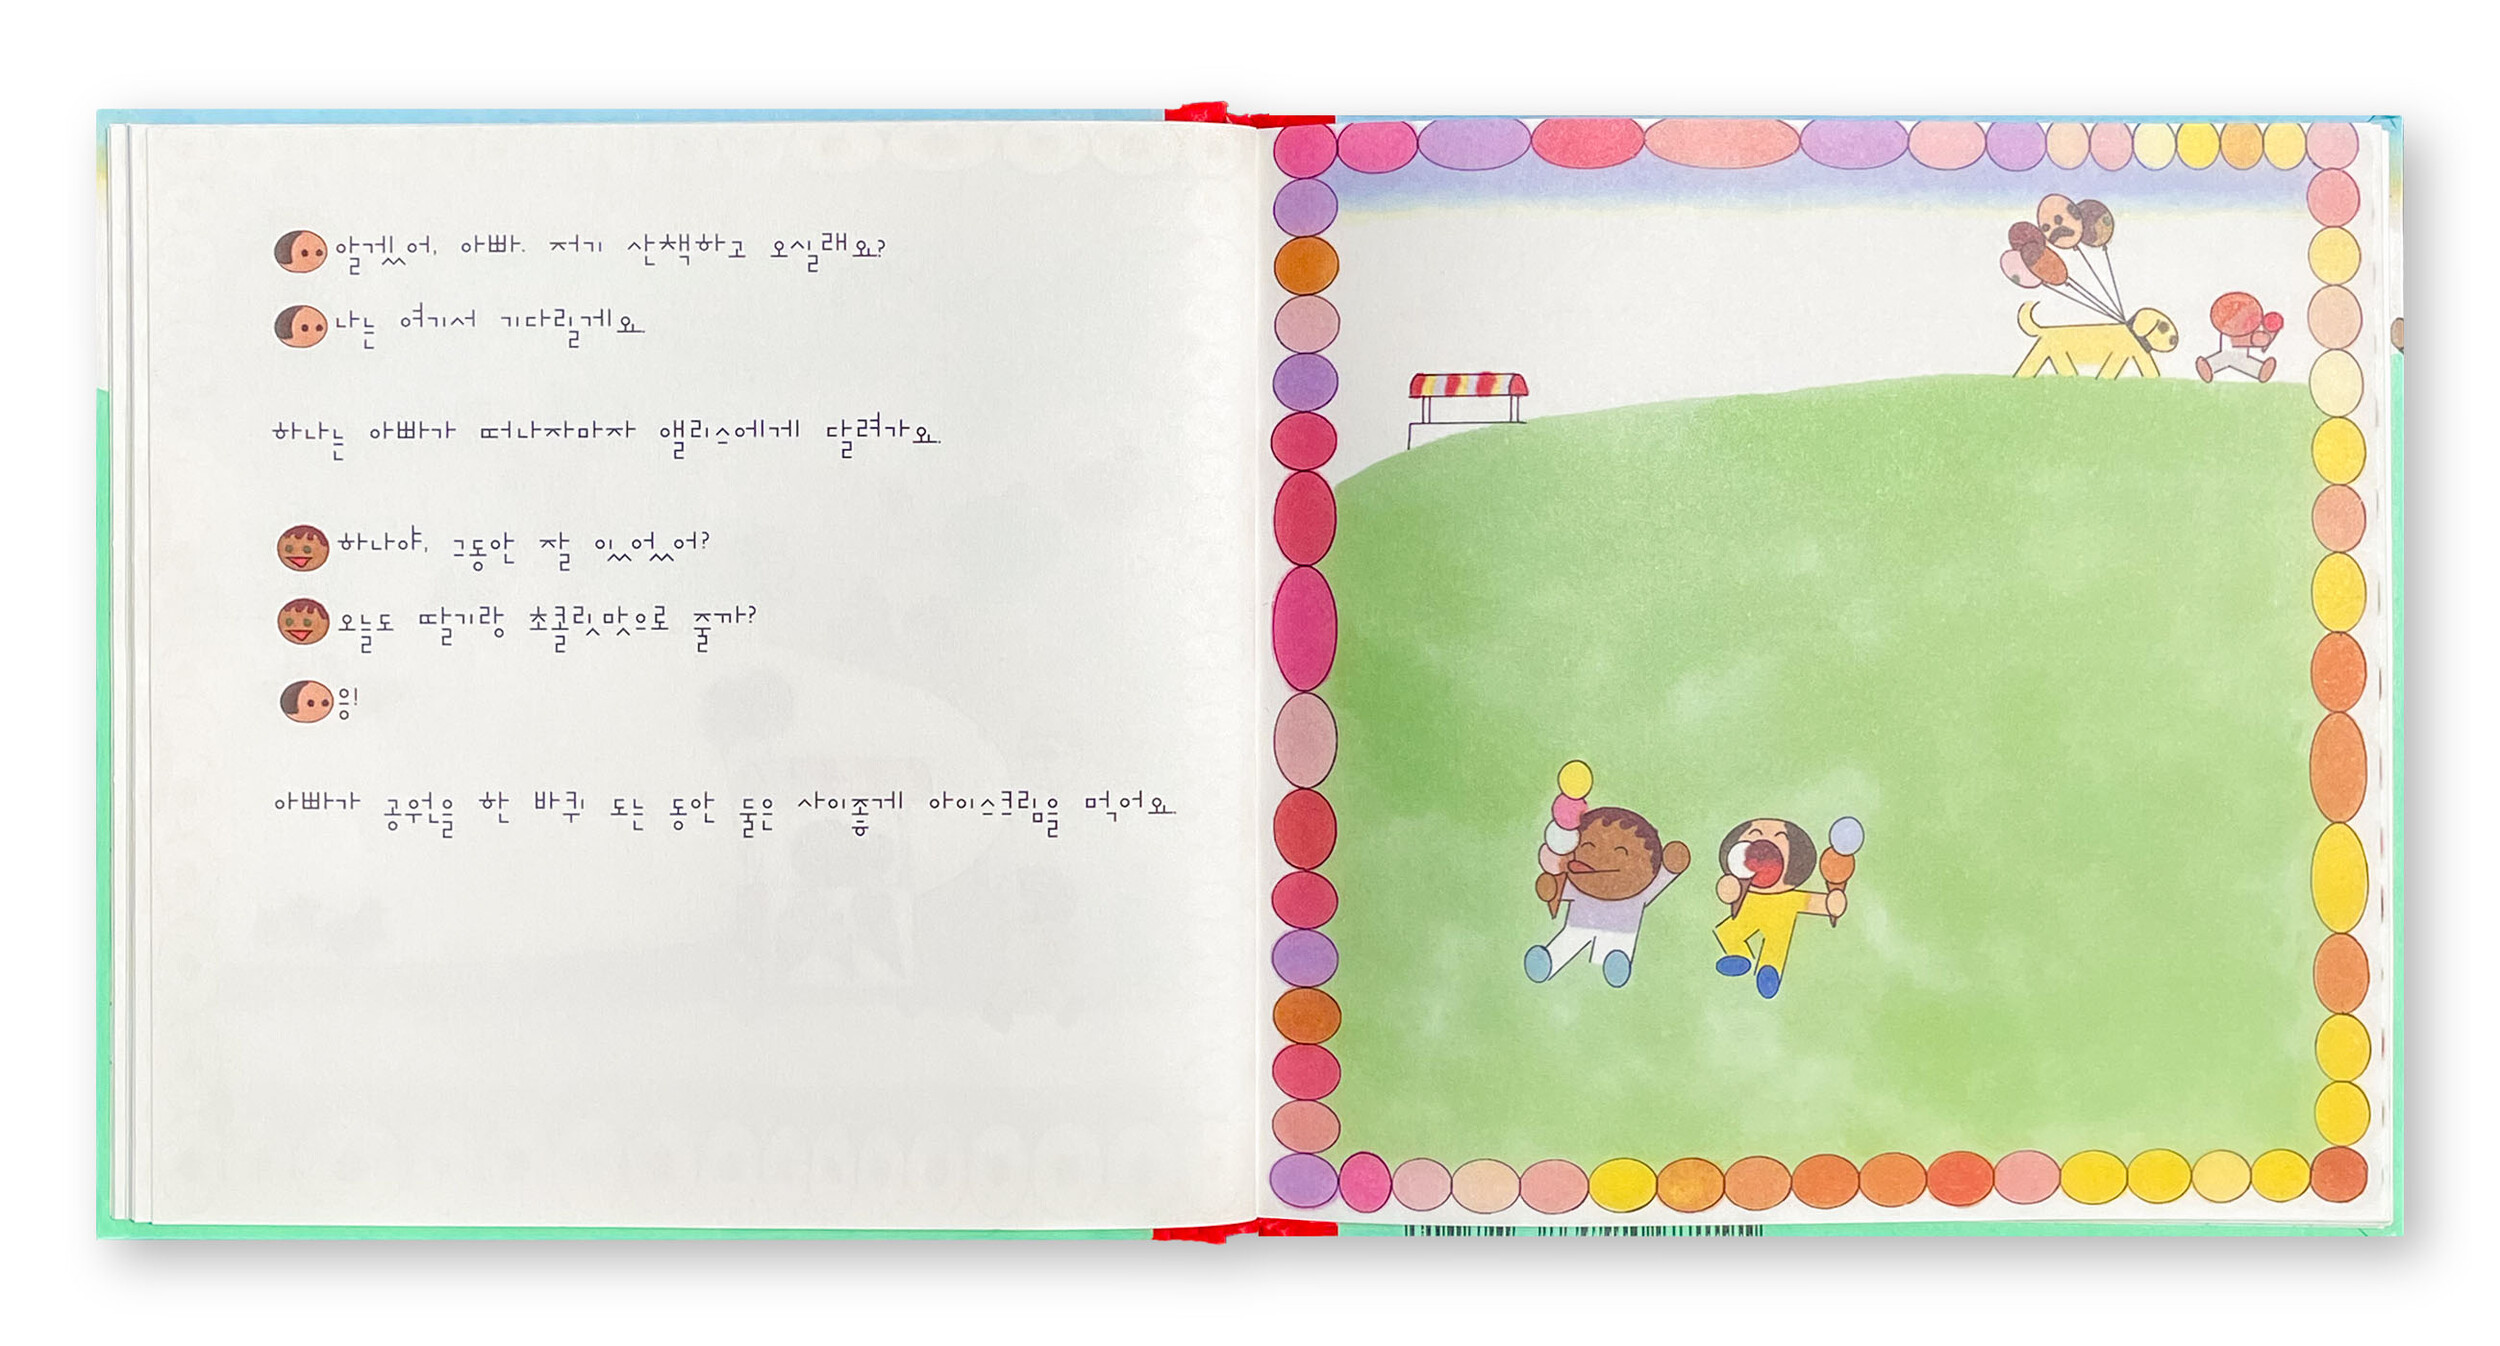 알겠어, 아빠. 저기 산책하고 오실래요?
나는 여기서 기다릴게요.
하나는 아빠가 떠나자마자 앨리스에게 달려가요.
하나야, 그동안 잘 있었어?
오늘도 딸기랑 초콜릿 맛으로 줄까?
응!
아빠가 공원을 한 바퀴 도는 동안 둘은 사이좋게 아이스크림을 먹어요.